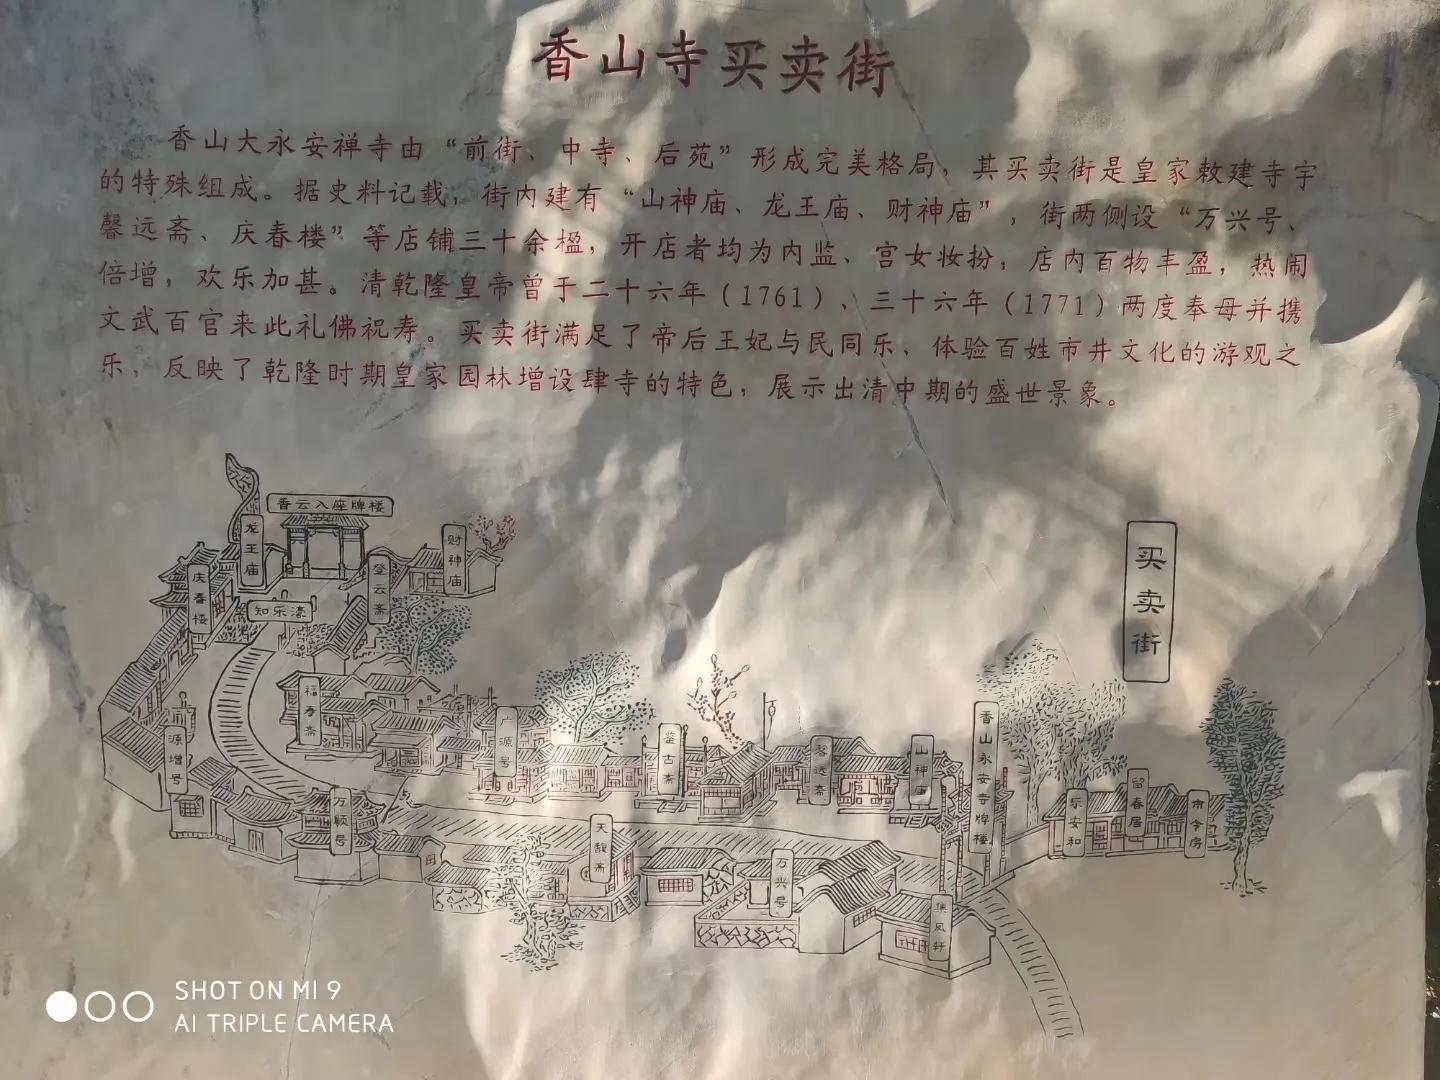 香山寺买卖街
香山大永安禅寺由“前街、中寺、后苑”形成完美格局，其买卖街是皇家敕建寺宇
的特殊组成。据史料记载，街内建有“山神庙、龙王庙、财神庙”，街两侧设“万兴号、
馨远斋、庆春楼”等店铺三十余楹，开店者均为内监、宫女妆扮，店内百物丰盈，热闹
倍增，欢乐加甚。清乾隆皇帝曾于二十六年（1761）、三十六年（1771）两度奉母并携
文武百官来此礼佛祝寿。买卖街满足了帝后王妃与民同乐、体验百姓市井文化的游观之
乐，反映了乾隆时期皇家园林增设肆寺的特色，展示出清中期的盛世景象。
香云入座牌楼
龙王庙
财神庙
登云斋
庆春楼
知乐濠
买卖街
福寿斋
源增号
广源号
鉴古斋
馨远斋
山神庙
香山永安寺牌楼
乐安和
留春居
命令房
万顺号
天馥斋
万兴号
集凤轩
SHOT ON MI 9
AI TRIPLE CAMERA